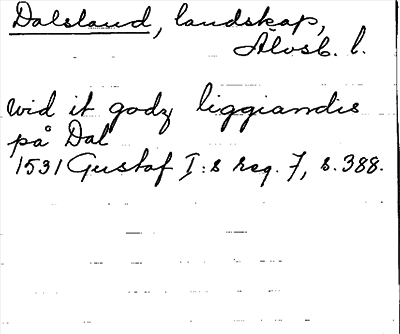 Dalsland, landskap,
Älvsb. l.
wid it godz liggiandis
på Dal
1531 Gustaf I:s reg. 7, s. 388.